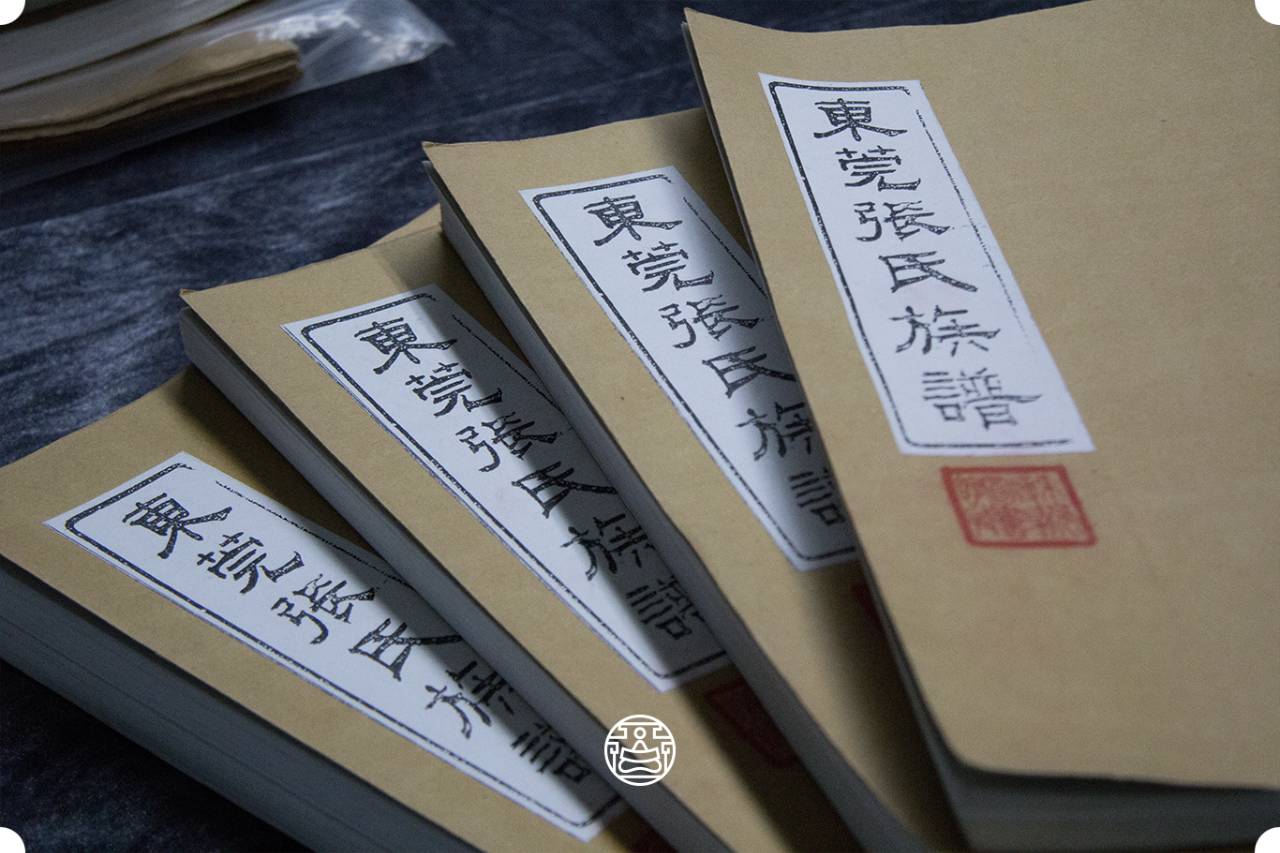 東莞張氏族譜
東莞張氏族譜
東莞張氏族譜
東莞張氏族譜